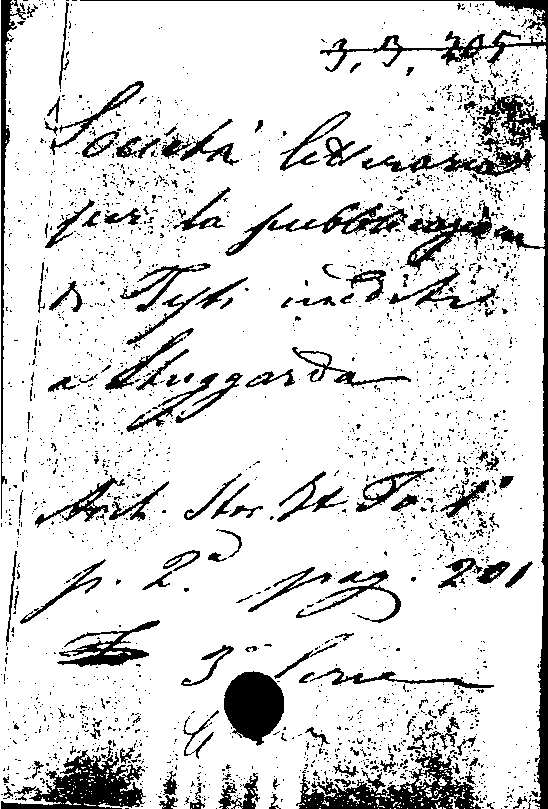 3, 3, 205
Società letteraria
per la pubblicazion
di Testi inediti
a Stuggarda
Arch. Stor. It. To. 1°
p. 2.a pag. 201
3a Serie